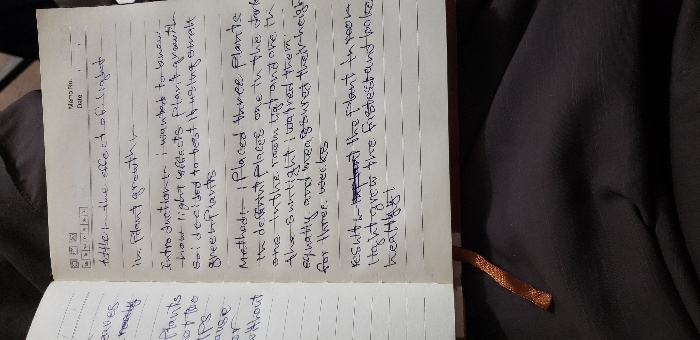 Memo No.
Date
title:- the effect of light
in Plant growth
Introduction:- i wanted to know
how light effects Plant growth
so i decided to test it using small
green Plants
Method:- i Placed three Plants
in different Places one in the dark
one in the room light and one in
the sunlight i watred them
equally and measured their height
for three weeks
result:- the Plant in room
light grew the
healthy
eaves
Plants
not too
lps
ause
or
without